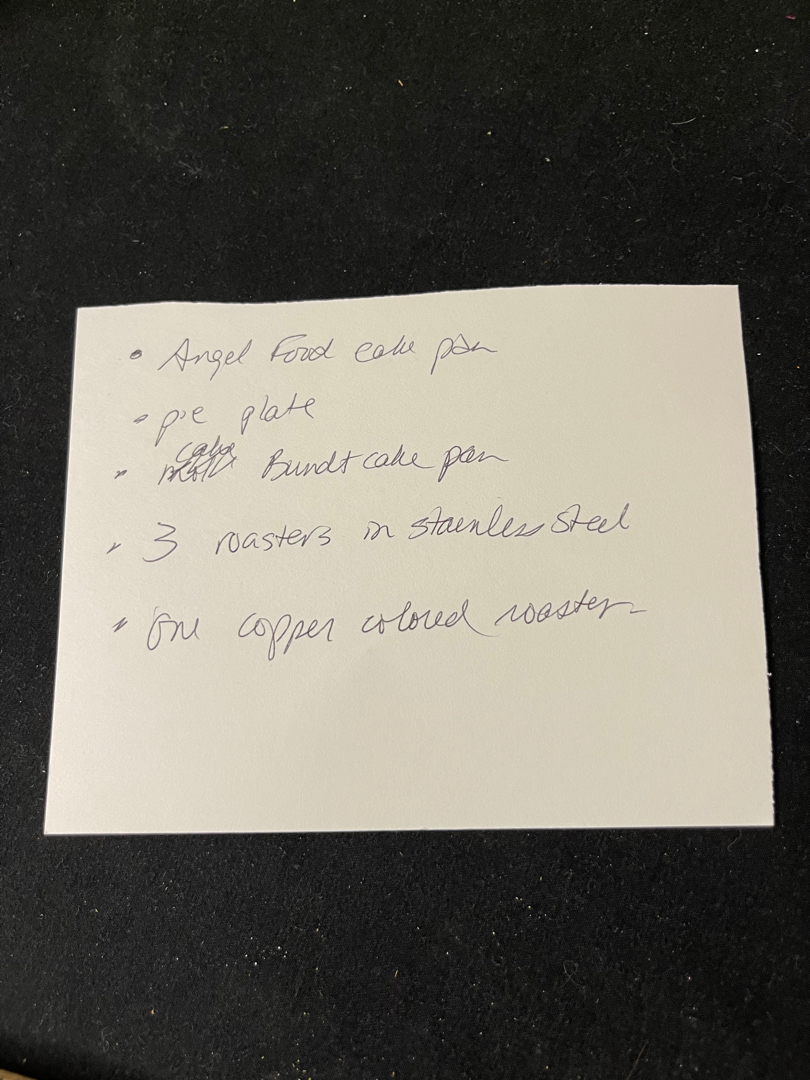 • Angel Food cake pan
• pie plate
• Bundt cake pan
• 3 roasters in stainless steel
• One copper colored roaster